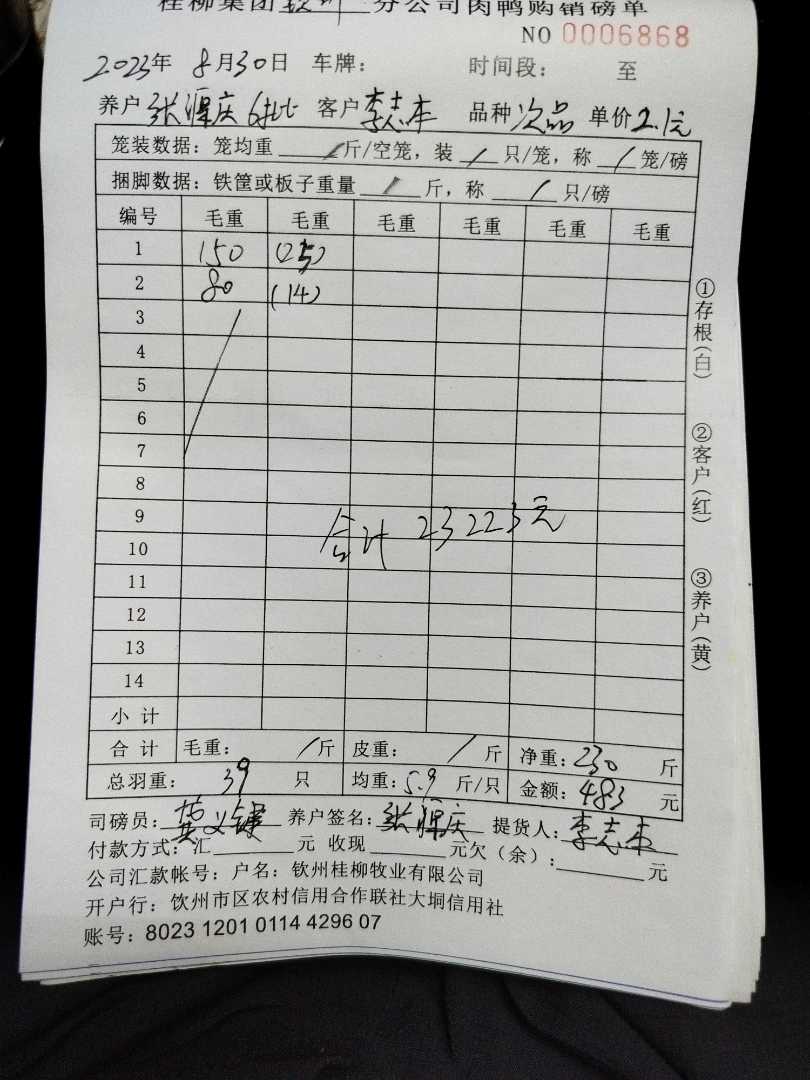 桂柳集团钦州分公司肉鸭购销磅单
NO 0006868
2023年 8月30日 车牌: 时间段: 至
养户 张 庆 6批 客户 李志本 品种 次品 单价 2.1元
笼装数据: 笼均重 / 斤/空笼, 装 / 只/笼, 称 / 笼/磅
捆脚数据: 铁筐或板子重量 / 斤, 称 / 只/磅
编号 毛重 毛重 毛重 毛重 毛重 毛重
1 150 (25)
2 80 (14)
3
4
5
6
7
8
9
合计 23223元
10
11
12
13
14
小计
合计 毛重: / 斤 皮重: / 斤 净重: 230 斤
总羽重: 39 只 均重: 5.9 斤/只 金额: 483 元
司磅员: 黄义键 养户签名: 张 庆 提货人: 李志本
付款方式: 汇 元 收现 元欠(余): 元
公司汇款帐号: 户名: 钦州桂柳牧业有限公司
开户行: 钦州市区农村信用合作联社大垌信用社
账号: 8023 1201 0114 4296 07
①存根(白)
②客户(红)
③养户(黄)